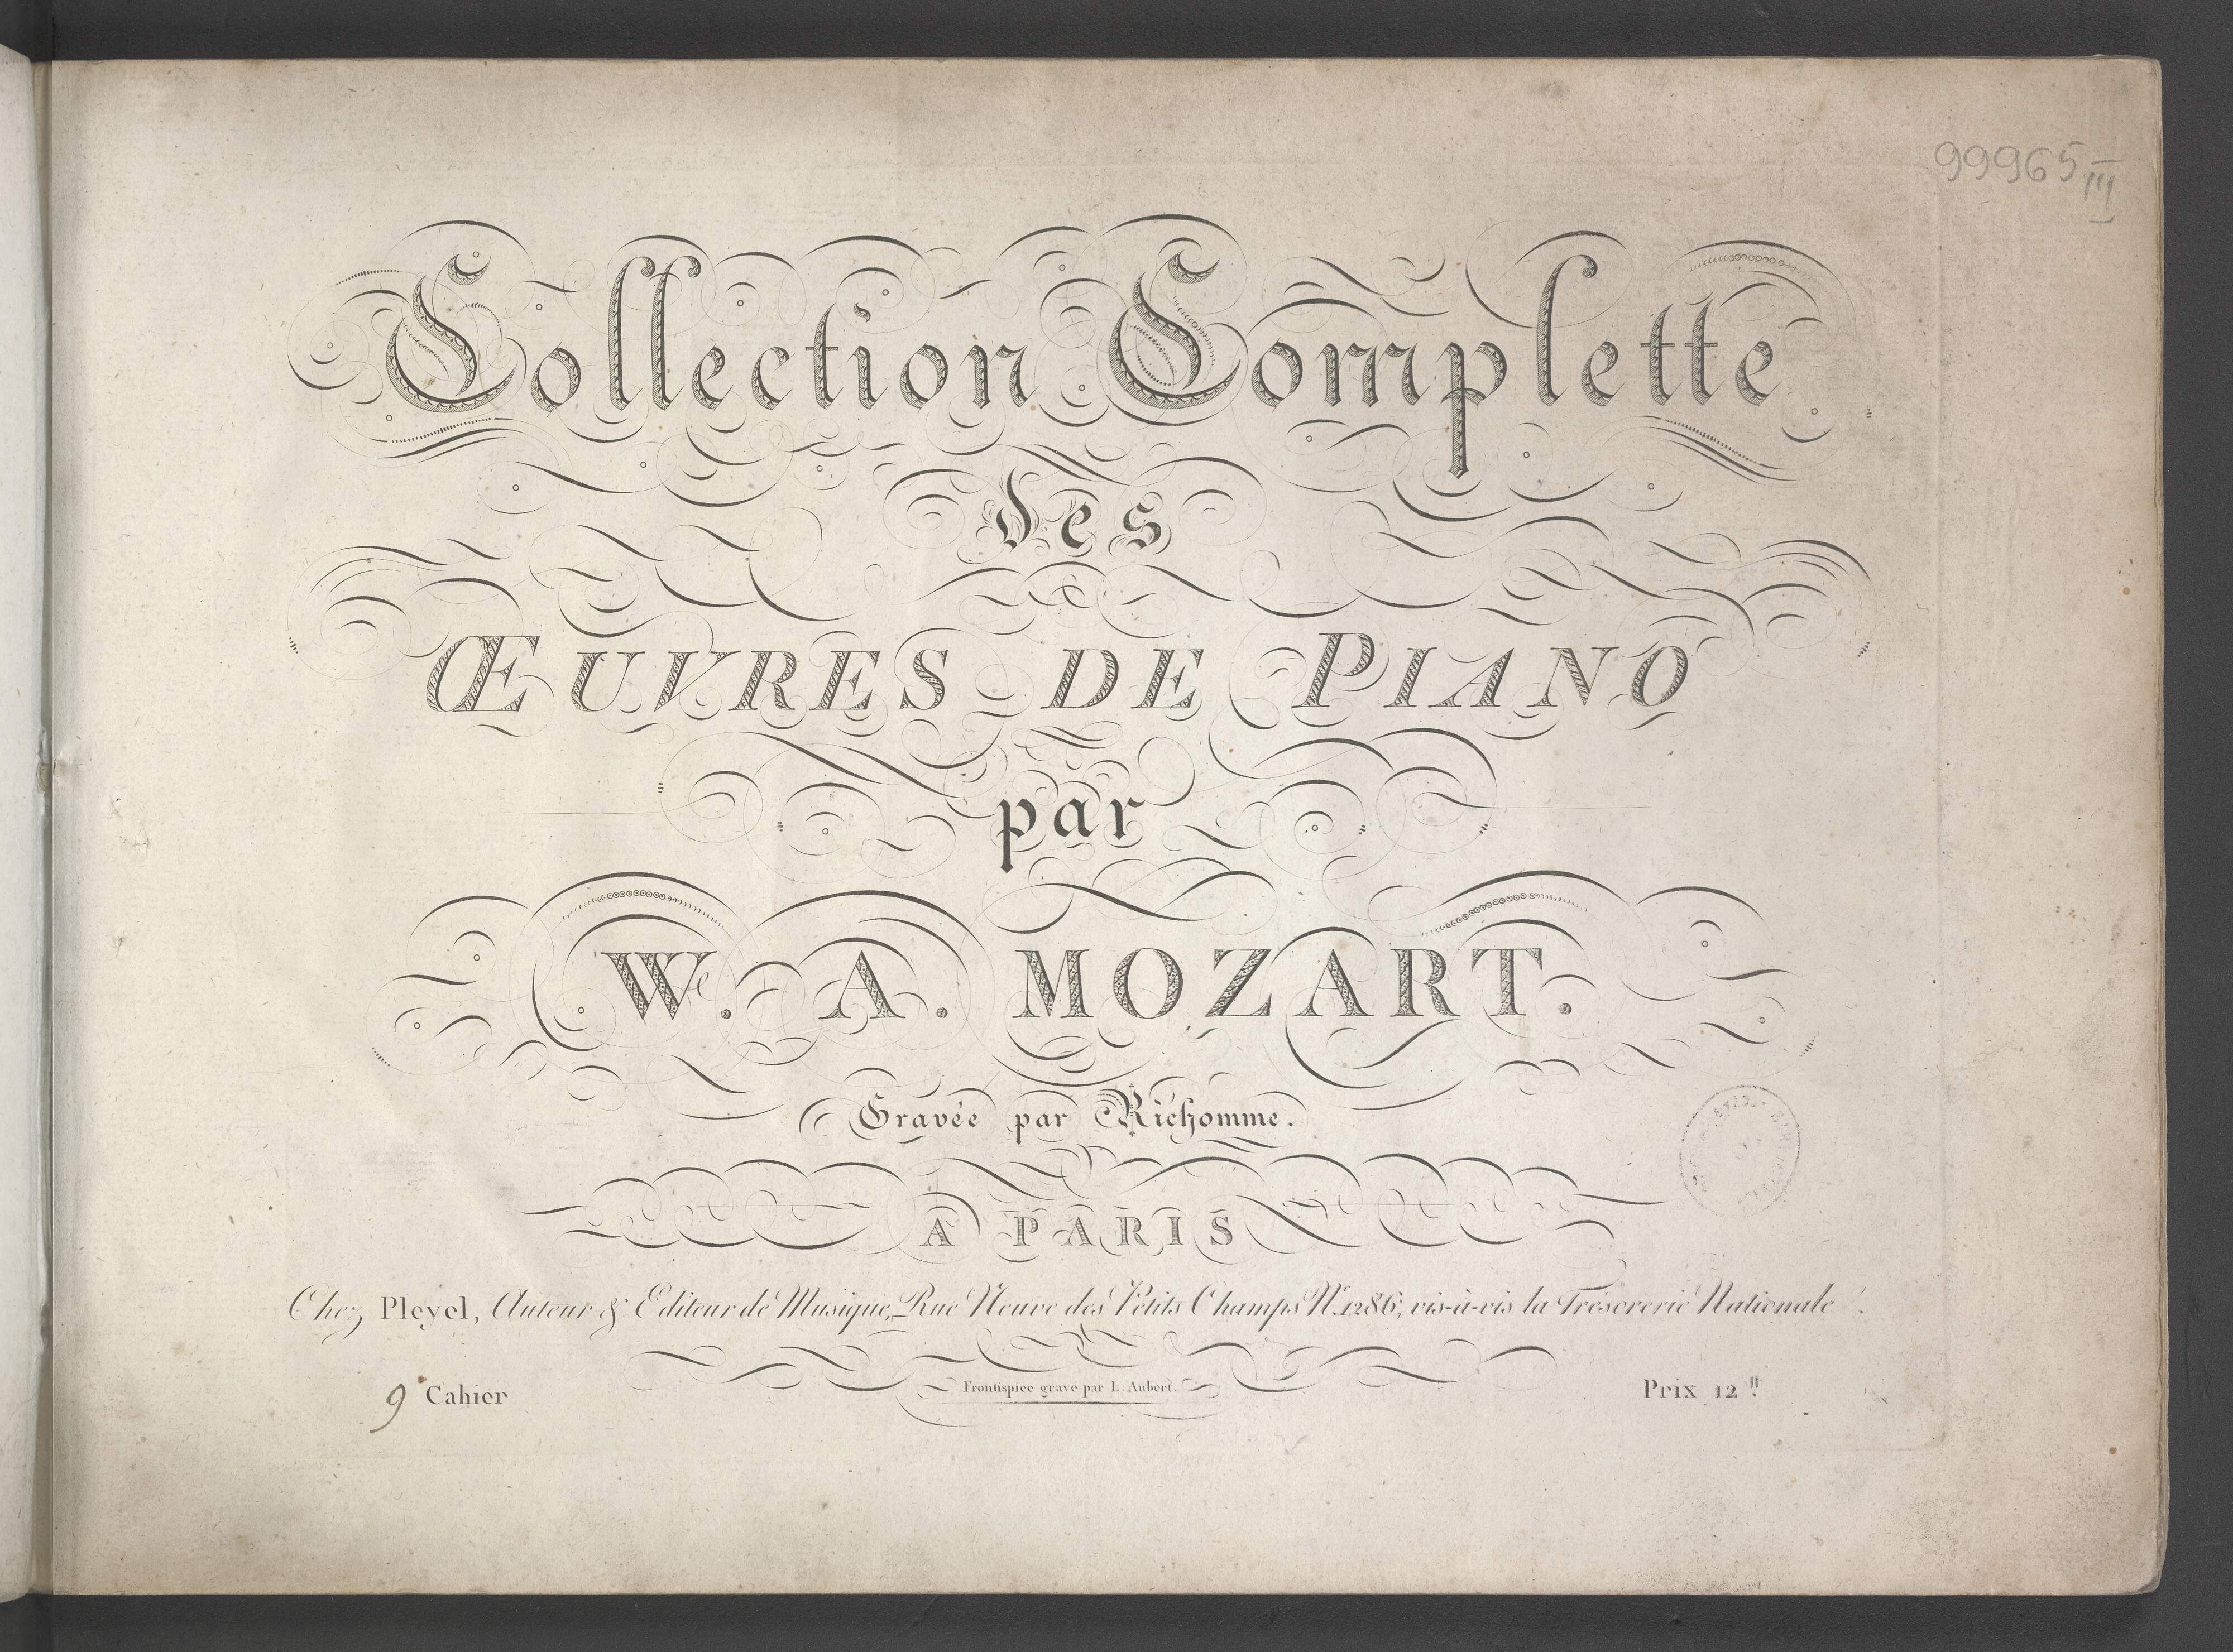 99965 III
Collection Complette
des
ŒUVRES DE PIANO
par
W. A. MOZART.
Gravée par Richomme.
A PARIS
Chez Pleyel, Auteur & Editeur de Musique, Rue Neuve des Petits Champs N.º 1286, vis-à-vis la Trésorerie Nationale.
9e Cahier
Frontispice gravé par L. Aubert.
Prix 12 ₶